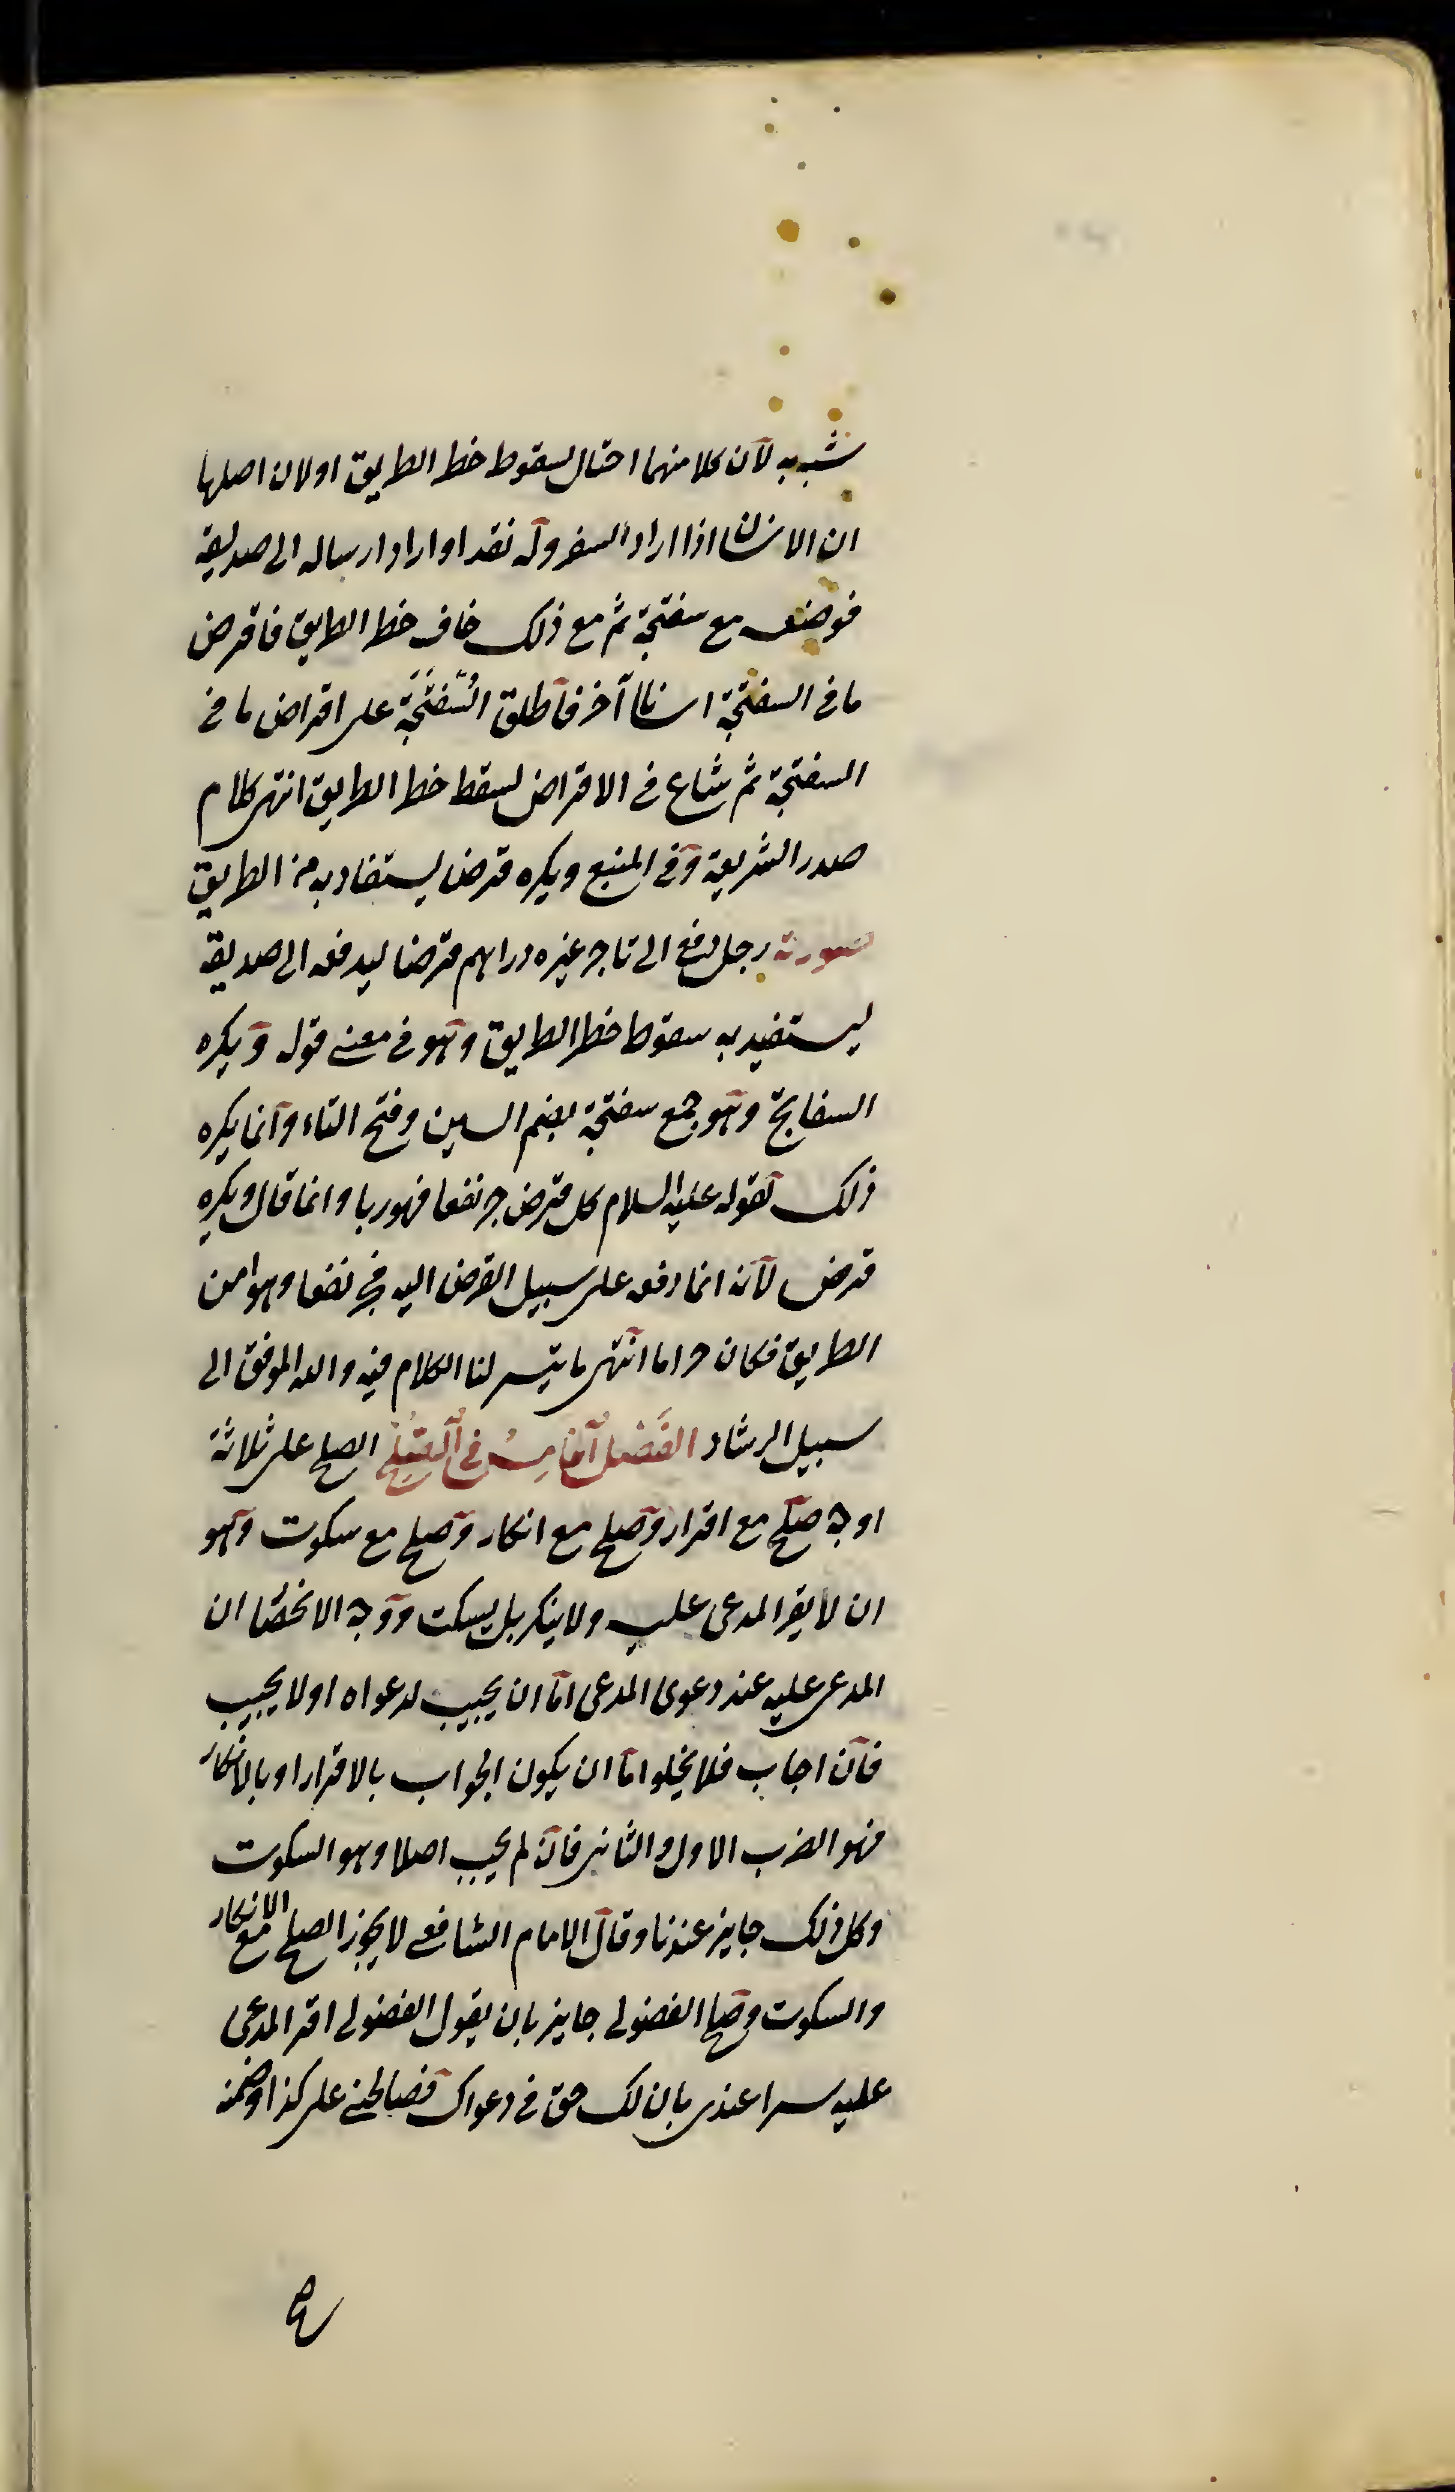 شبه به لان كلا منهما احتال لسقوط خطر الطريق او لان اصلها
ان الانسان اذا اراد السفر وله نقد او اراد ارساله الى صديقه
فوضعه مع سفتجة ثم مع ذلك خاف خطر الطريق فاقرض
ما في السفتجة انسانا آخر فاطلق السُّفْتَجَة على اقراض ما في
السفتجة ثم شاع في الاقراض لسقط خطر الطريق انتهى كلام
صدر الشريعة وفي المنبع ويكره قرض يستفاد به من الطريق
صورته رجل دفع الى تاجر غيره دراهم قرضا ليدفعه الى صديقه
ليستفيد به سقوط خطر الطريق وهو في معنى قوله ويكره
السفايج وهو جمع سفتجة بضم السين وفتح التاء وانما يكره
ذلك لقوله عليه السلام كل قرض جر نفعا فهو ربا وانما قال ويكره
قرض لانه انما دفعه على سبيل القرض اليه فجر نفعا وهو امن
الطريق فكان حراما انتهى ما تيسر لنا الكلام فيه والله الموفق الى
سبيل الرشاد الفَصْلُ الخامِسُ في الصُّلْحِ الصلح على ثلاثة
اوجه صلح مع اقرار وصلح مع انكار وصلح مع سكوت وهو
ان لا يقر المدعى عليه ولا ينكر بل يسكت ووجه الانحصار ان
المدعى عليه عند دعوى المدعى اما ان يجيب لدعواه او لا يجيب
فان اجاب فلا يخلوا اما ان يكون الجواب بالاقرار او بالانكار
فهو الضرب الاول والثانى فان لم يجب اصلا وهو السكوت
وكل ذلك جايز عندنا وقال الامام الشافعي لا يجوز الصلح مع الانكار
والسكوت وصلح الفضولى جايز بان يقول الفضولى اقر المدعى
عليه سرا عندى بان لك حق في دعواك فصالحنى على كذا وضمنه